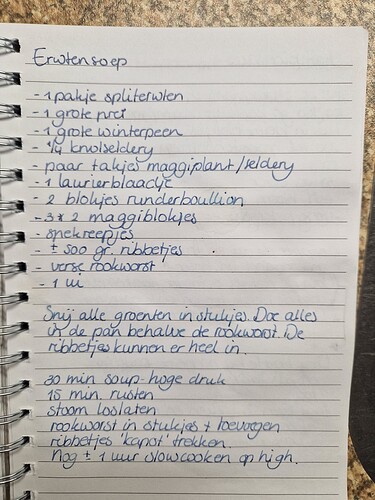 Erwtensoep
- 1 pakje spliterwten
- 1 grote prei
- 1 grote winterpeen
- 1/4 knolseldery
- paar takjes maggiplant/seldery
- 1 laurierblaadje
- 2 blokjes runderboullion
- 3 * 2 maggiblokjes
- spekreepjes
± 500 gr. ribbetjes
- verse rookworst
- 1 ui
Snij alle groenten in stukjes. Doe alles
in de pan behalve de rookworst. De
ribbetjes kunnen er heel in.
30 min soup-hoge druk
15 min. rusten
stoom loslaten
rookworst in stukjes + toevoegen
ribbetjes 'kapot' trekken.
Nog ± 1 uur slowcooken op high.